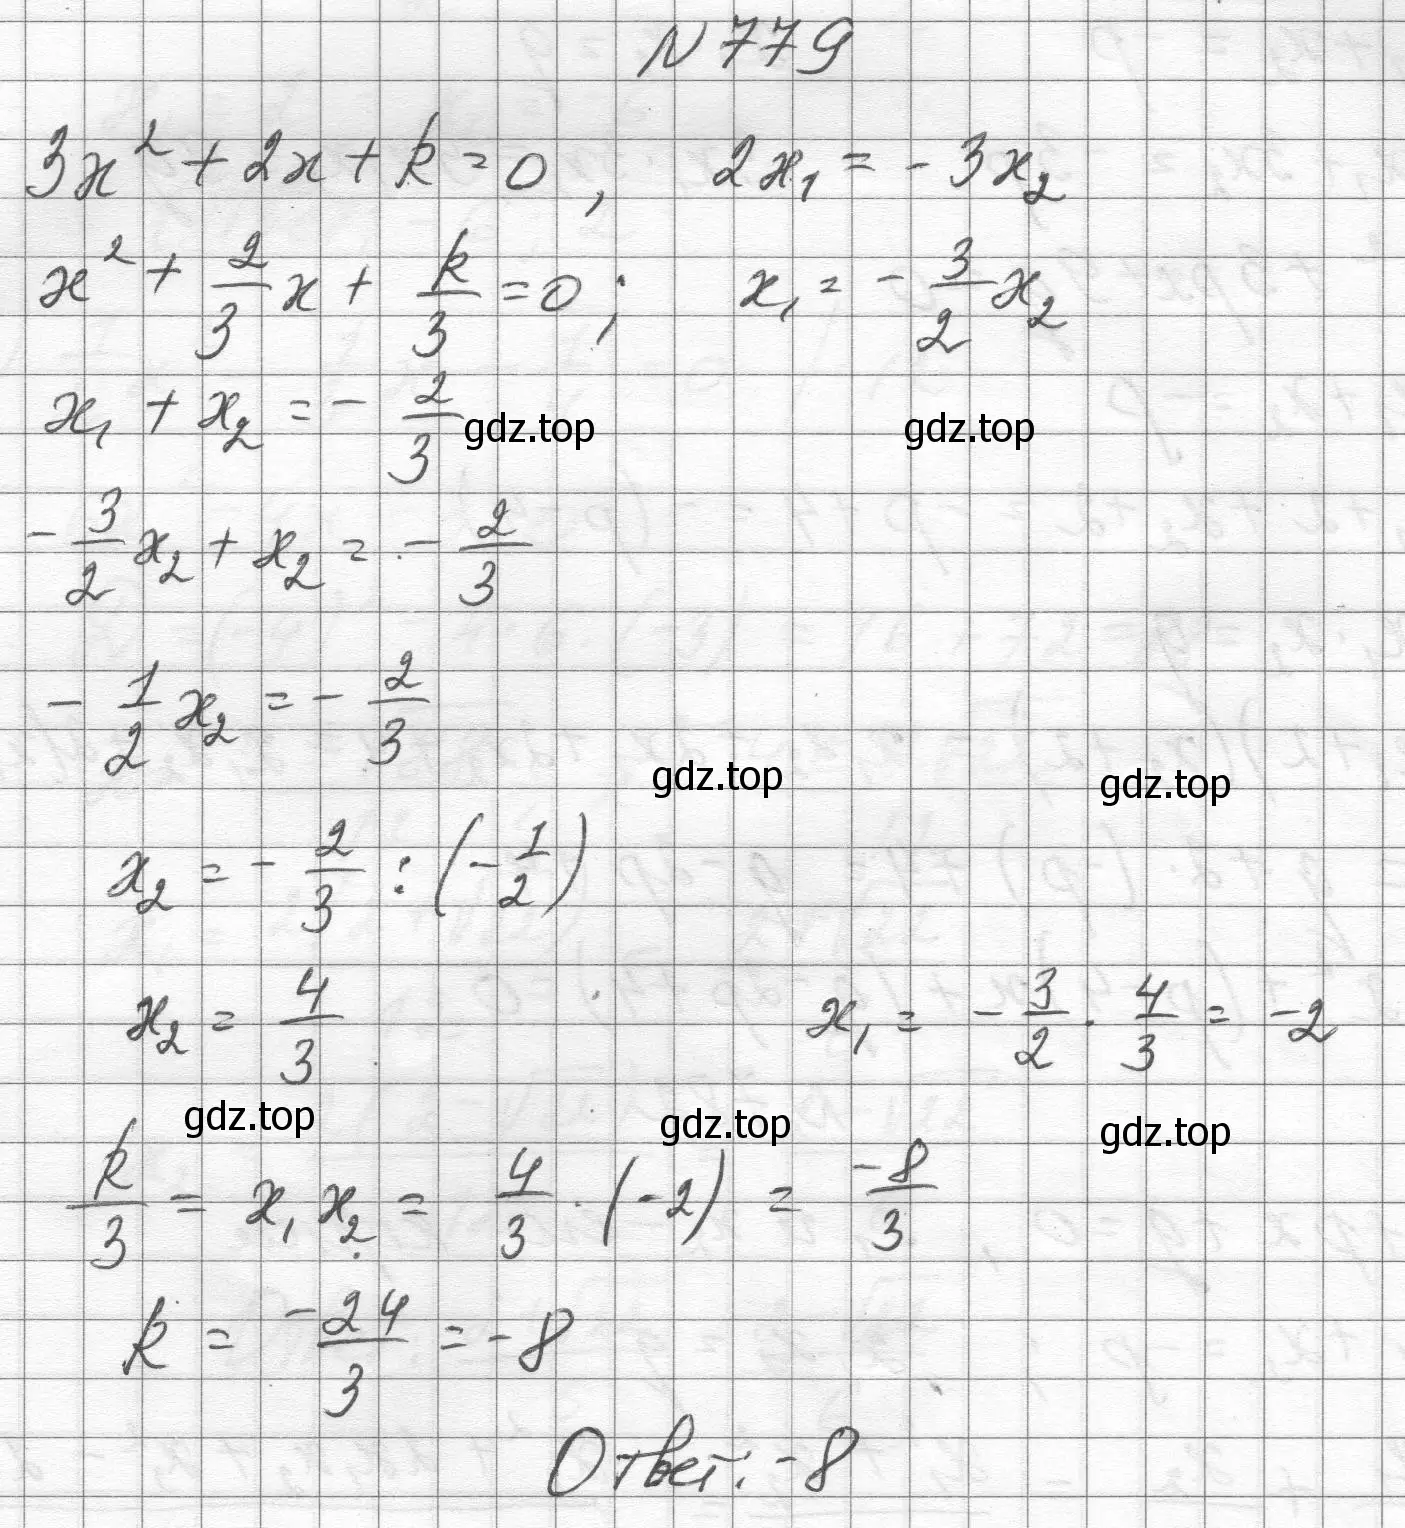 N 779
3x² + 2x + k = 0 , 2x₁ = - 3x₂
x² + 2/3 x + k/3 = 0 ; x₁ = - 3/2 x₂
x₁ + x₂ = - 2/3
gdz.top gdz.top
- 3/2 x₂ + x₂ = - 2/3
- 1/2 x₂ = - 2/3
gdz.top gdz.top
x₂ = - 2/3 : (- 1/2)
x₂ = 4/3 x₁ = - 3/2 · 4/3 = -2
gdz.top gdz.top gdz.top
k/3 = x₁ x₂ = 4/3 · (-2) = -8/3
k = -24/3 = -8
Ответ: -8